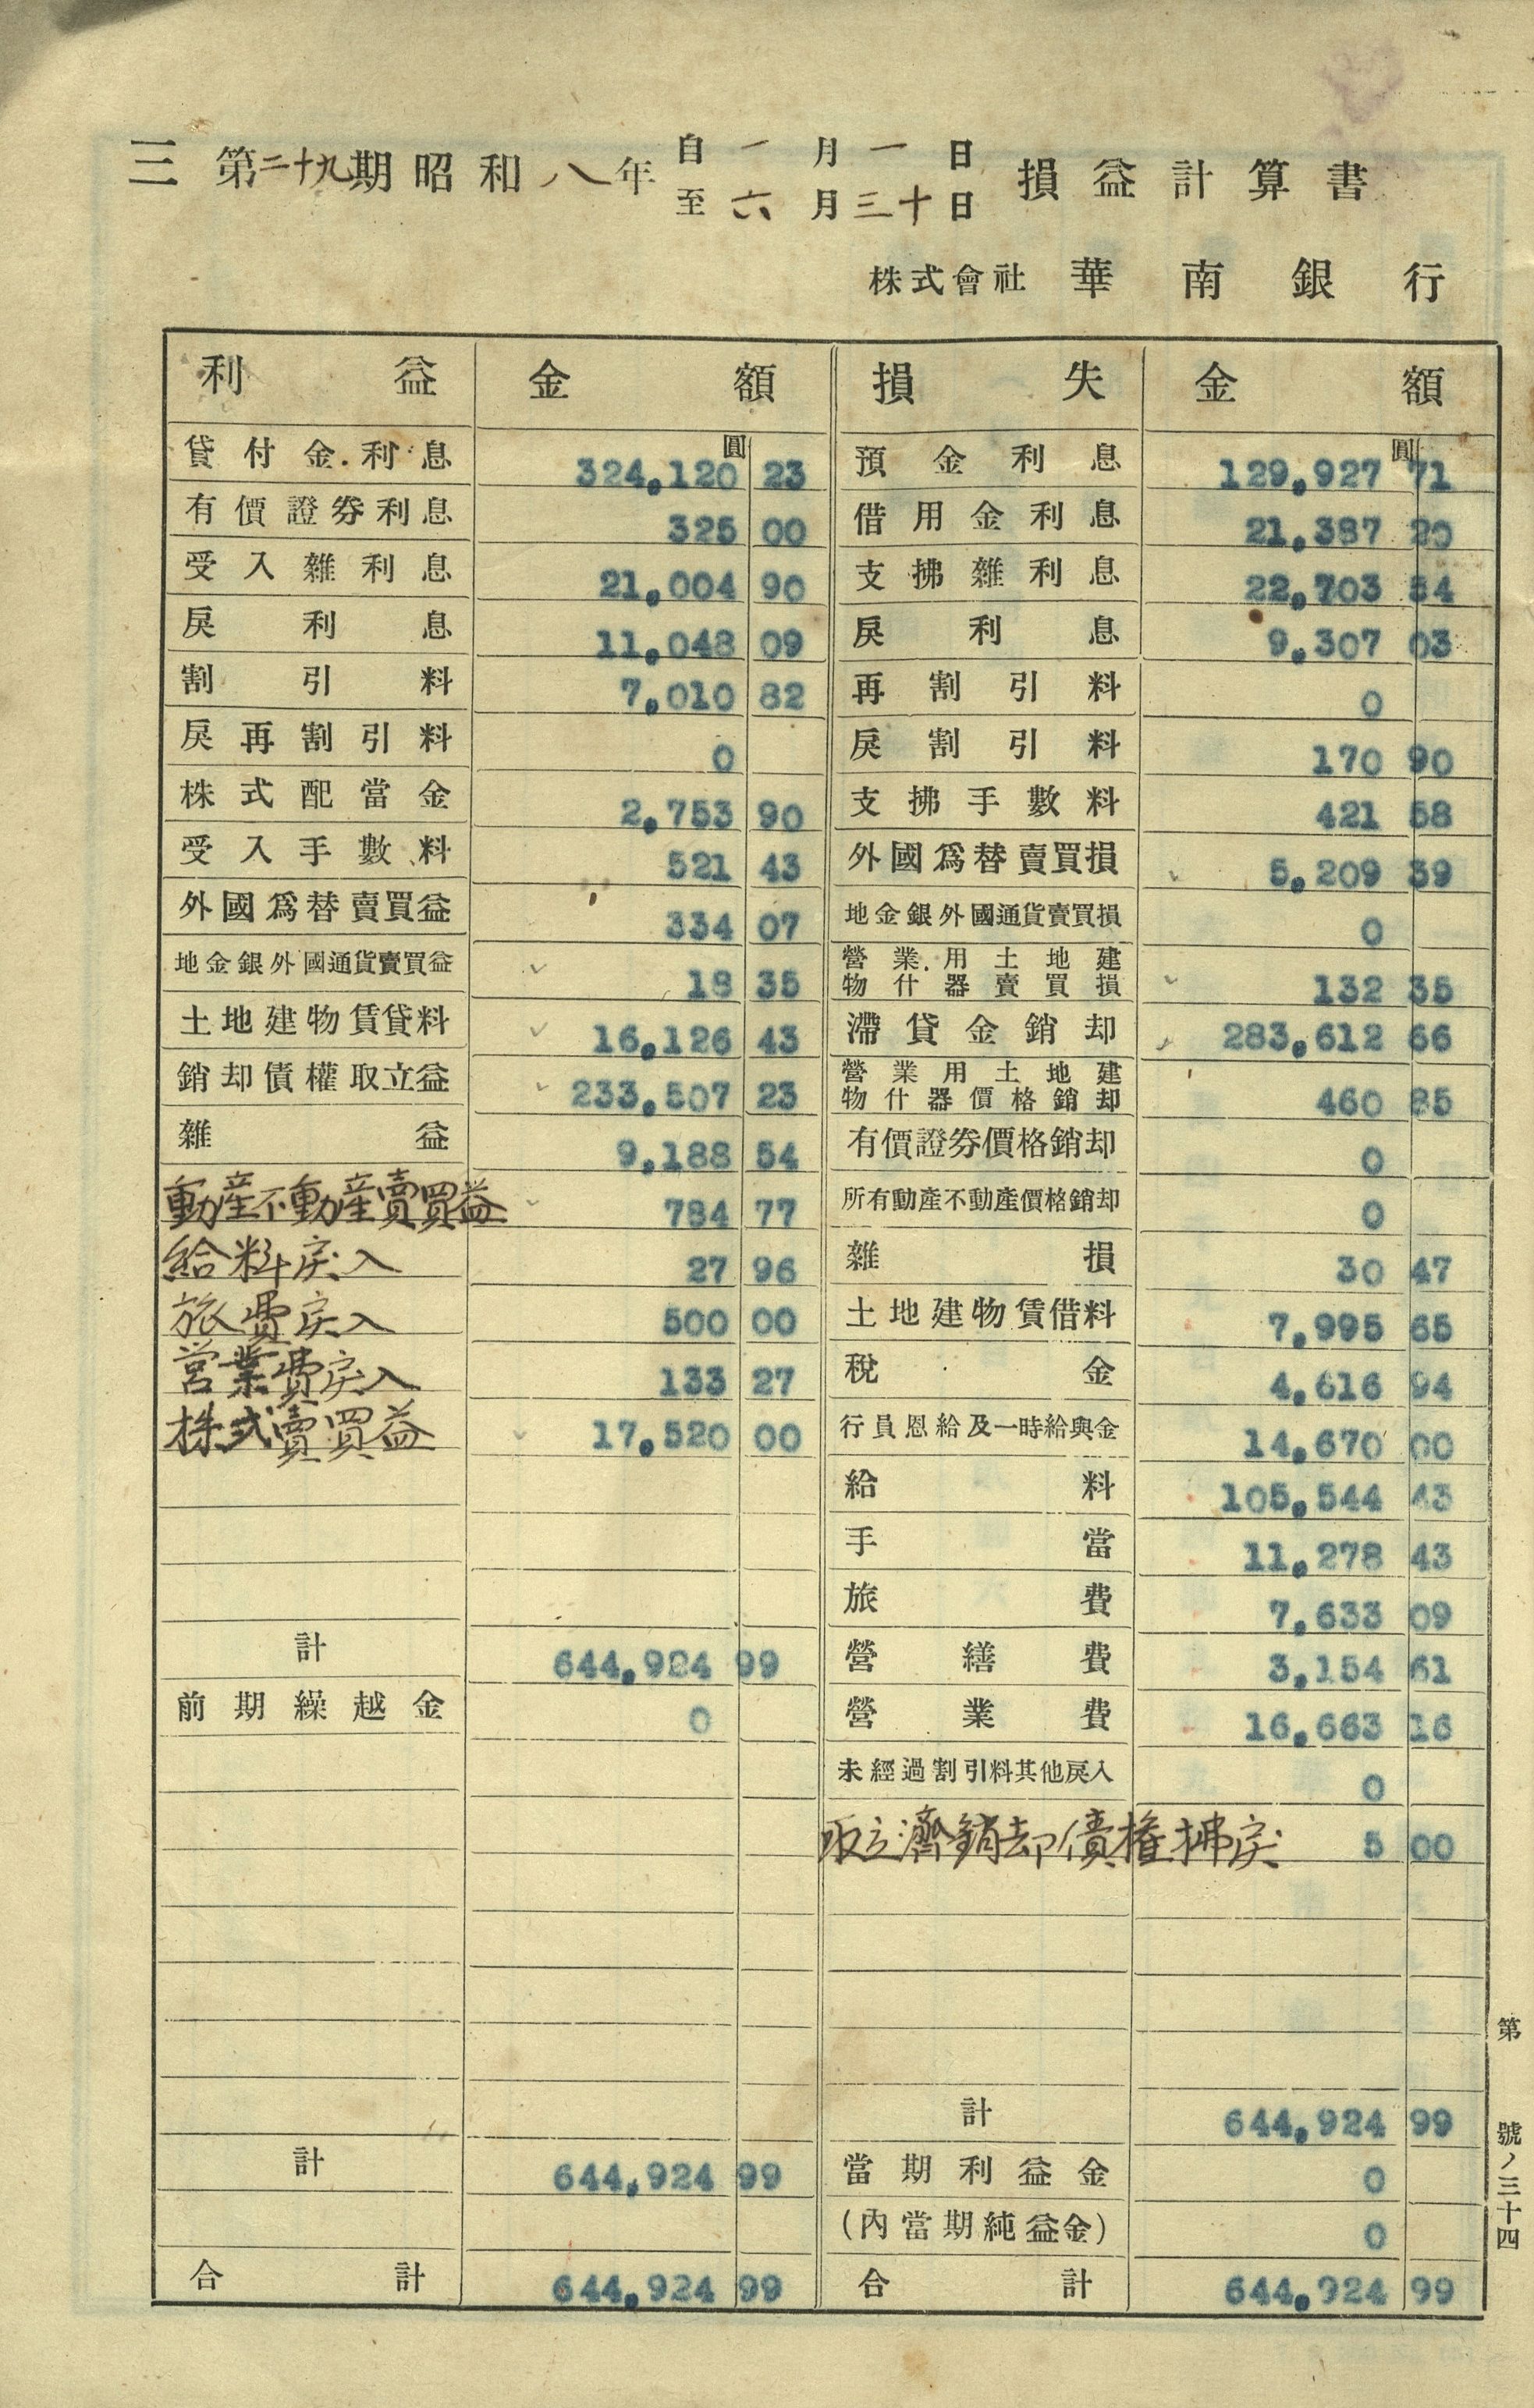 三 第二十九期昭和八年 自一月一日 至六月三十日 損益計算書
株式會社 華南銀行
利益 金額 損失 金額
貸付金利息 圓 324,120 23 預金利息 圓 129,927 71
有價證券利息 325 00 借用金利息 21,387 20
受入雜利息 21,004 90 支拂雜利息 22,703 54
戾利息 11,048 09 戾利息 9,307 03
割引料 7,010 82 再割引料 0
戾再割引料 0 戾割引料 170 90
株式配當金 2,753 90 支拂手數料 421 58
受入手數料 521 43 外國爲替賣買損 5,209 39
外國爲替賣買益 334 07 地金銀外國通貨賣買損 0
地金銀外國通貨賣買益 18 35 營業用土地建物什器賣買損 132 35
土地建物賃貸料 16,126 43 滯貸金銷却 283,612 66
銷却債權取立益 233,507 23 營業用土地建物什器價格銷却 460 85
雜益 9,188 54 有價證券價格銷却 0
動產不動產賣買益 784 77 所有動產不動產價格銷却 0
給料戻入 27 96 雜損 30 47
旅費戻入 500 00 土地建物賃借料 7,995 65
営業費戻入 133 27 稅金 4,616 94
株式賣買益 17,520 00 行員恩給及一時給與金 14,670 00
給料 105,544 43
手當 11,278 43
旅費 7,633 09
計 644,924 99 營繕費 3,154 61
前期繰越金 0 營業費 16,663 16
未經過割引料其他戾入 0
取立濟銷却債権拂戻 5 00
計 644,924 99
計 644,924 99 當期利益金 0
(內當期純益金) 0
合計 644,924 99 合計 644,924 99
第 號ノ三十四